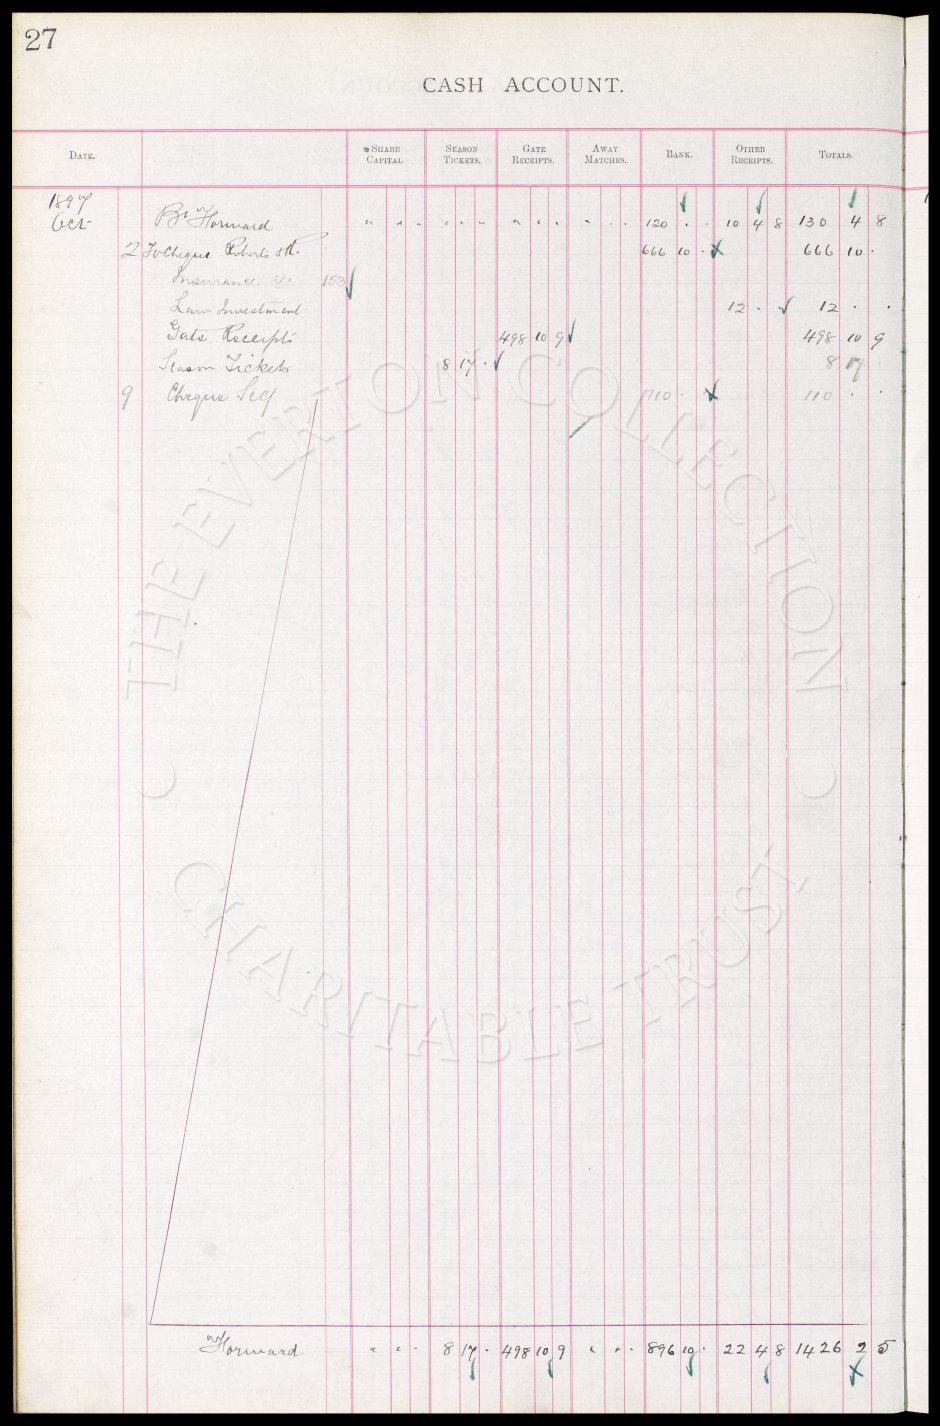 27
CASH ACCOUNT.
DATE. SHARE CAPITAL. SEASON TICKETS. GATE RECEIPTS. AWAY MATCHES. BANK. OTHER RECEIPTS. TOTALS.
1897
Oct Bt Forward " " " " " " " " " " " " 120 . . 10 4 8 130 4 8
2 To Cheque Roberts 666 10 . 666 10 .
Insurance 153
Loan Investment 12 . . 12 . .
Gate Receipts 498 10 9 498 10 9
Season Tickets 8 17 . 8 17 .
9 Cheque Self 110 . 110 . .
Forward " " . 8 17 . 498 10 9 " " . 896 10 . 22 4 8 1426 2 5
THE EVERTON COLLECTION
CHARITABLE TRUST